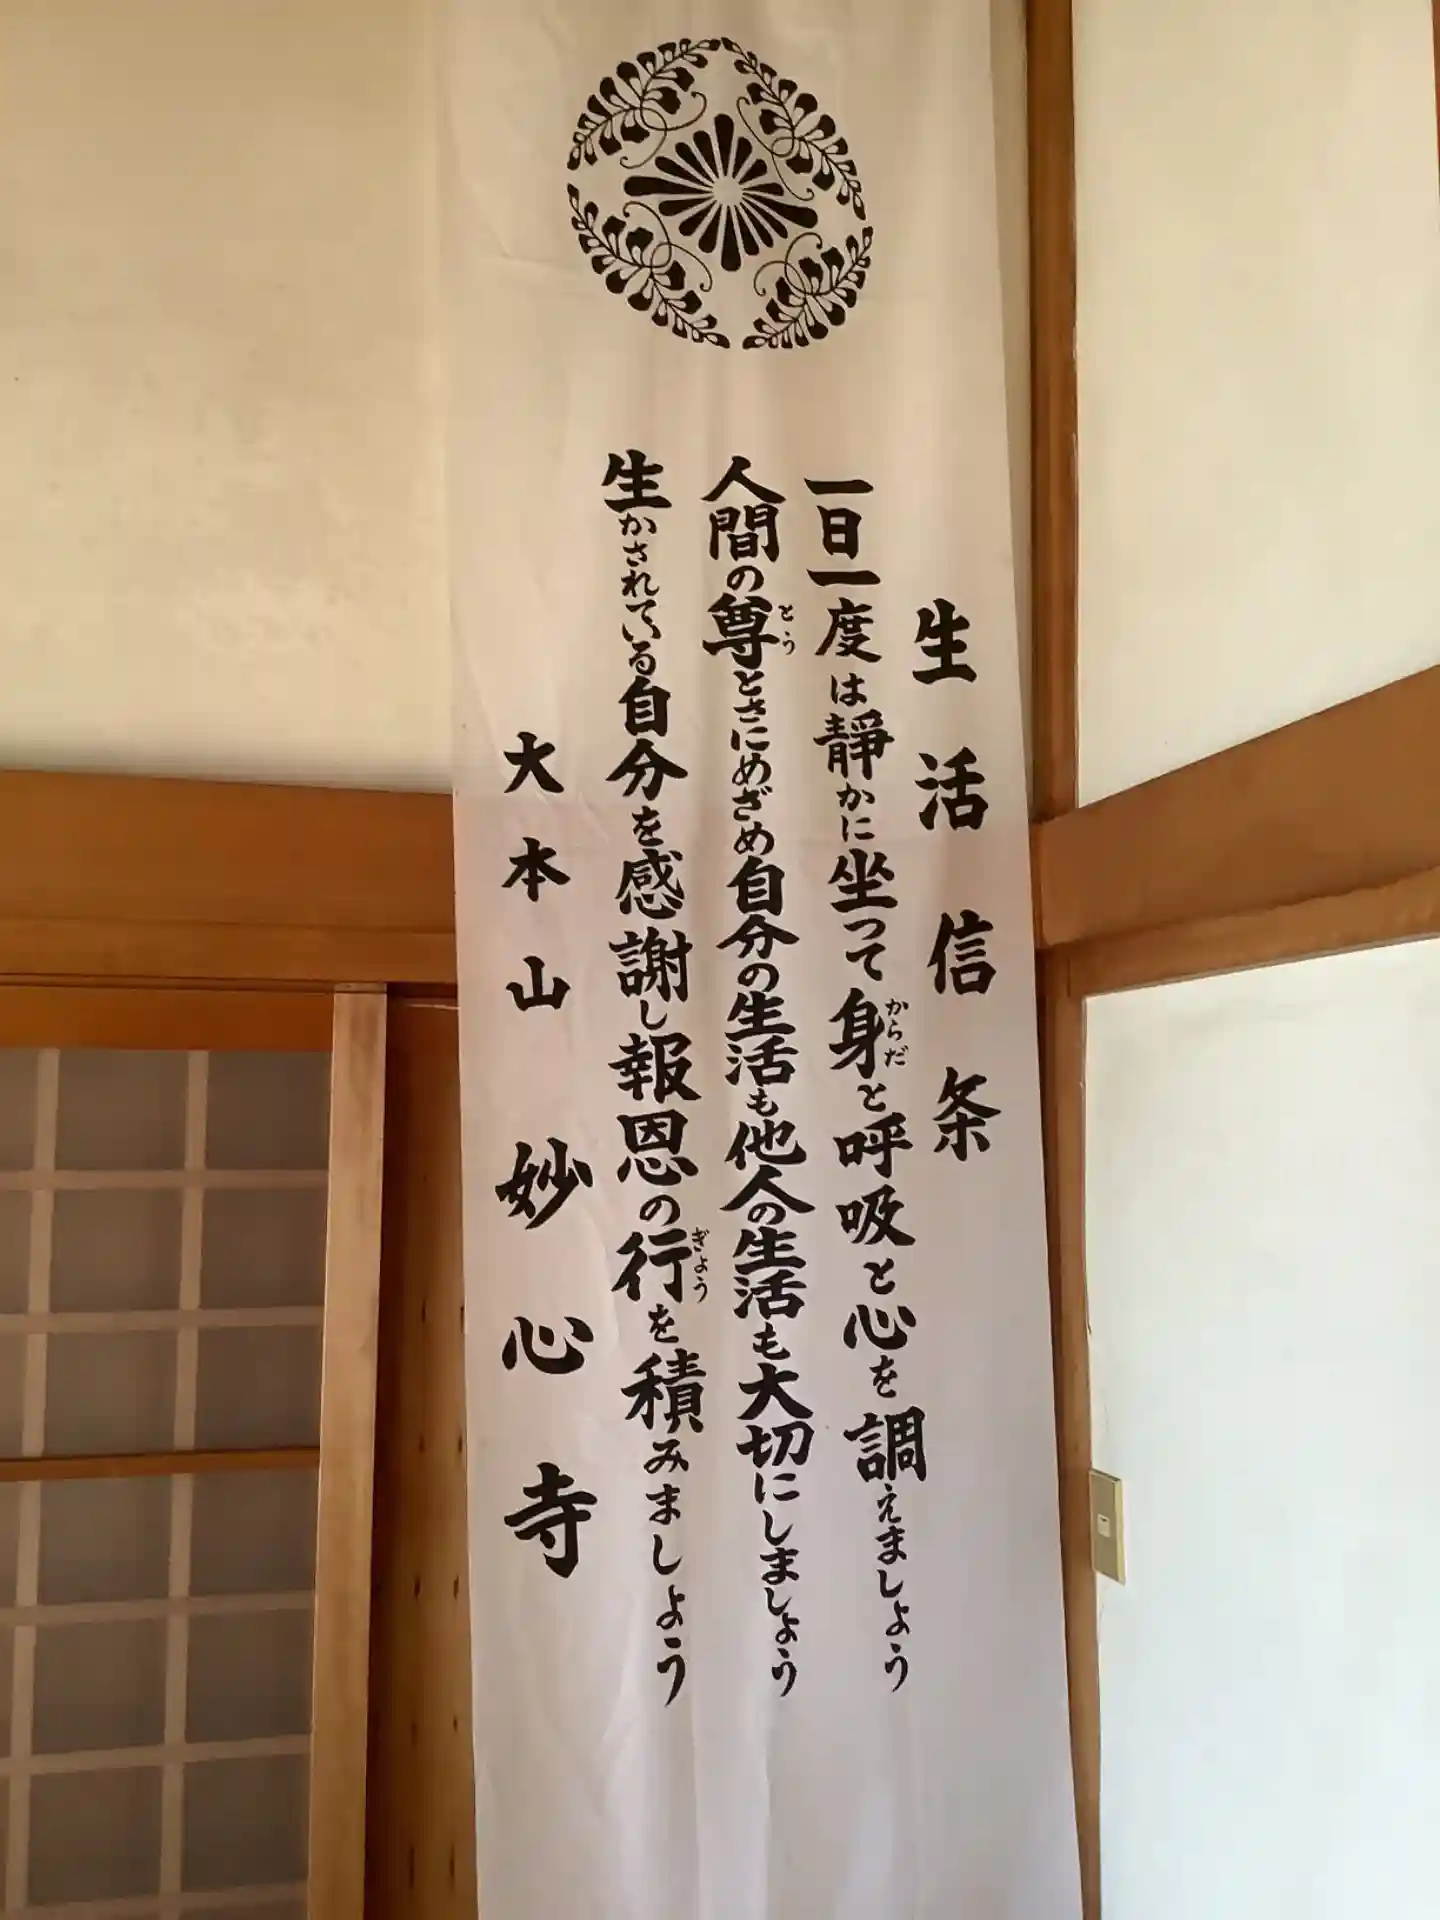 生活信条
一日一度は静かに坐って身と呼吸と心を調えましょう
からだ
人間の尊とさにめざめ自分の生活も他人の生活も大切にしましょう
とう
生かされている自分を感謝し報恩の行を積みましょう
ぎょう
大本山 妙心寺